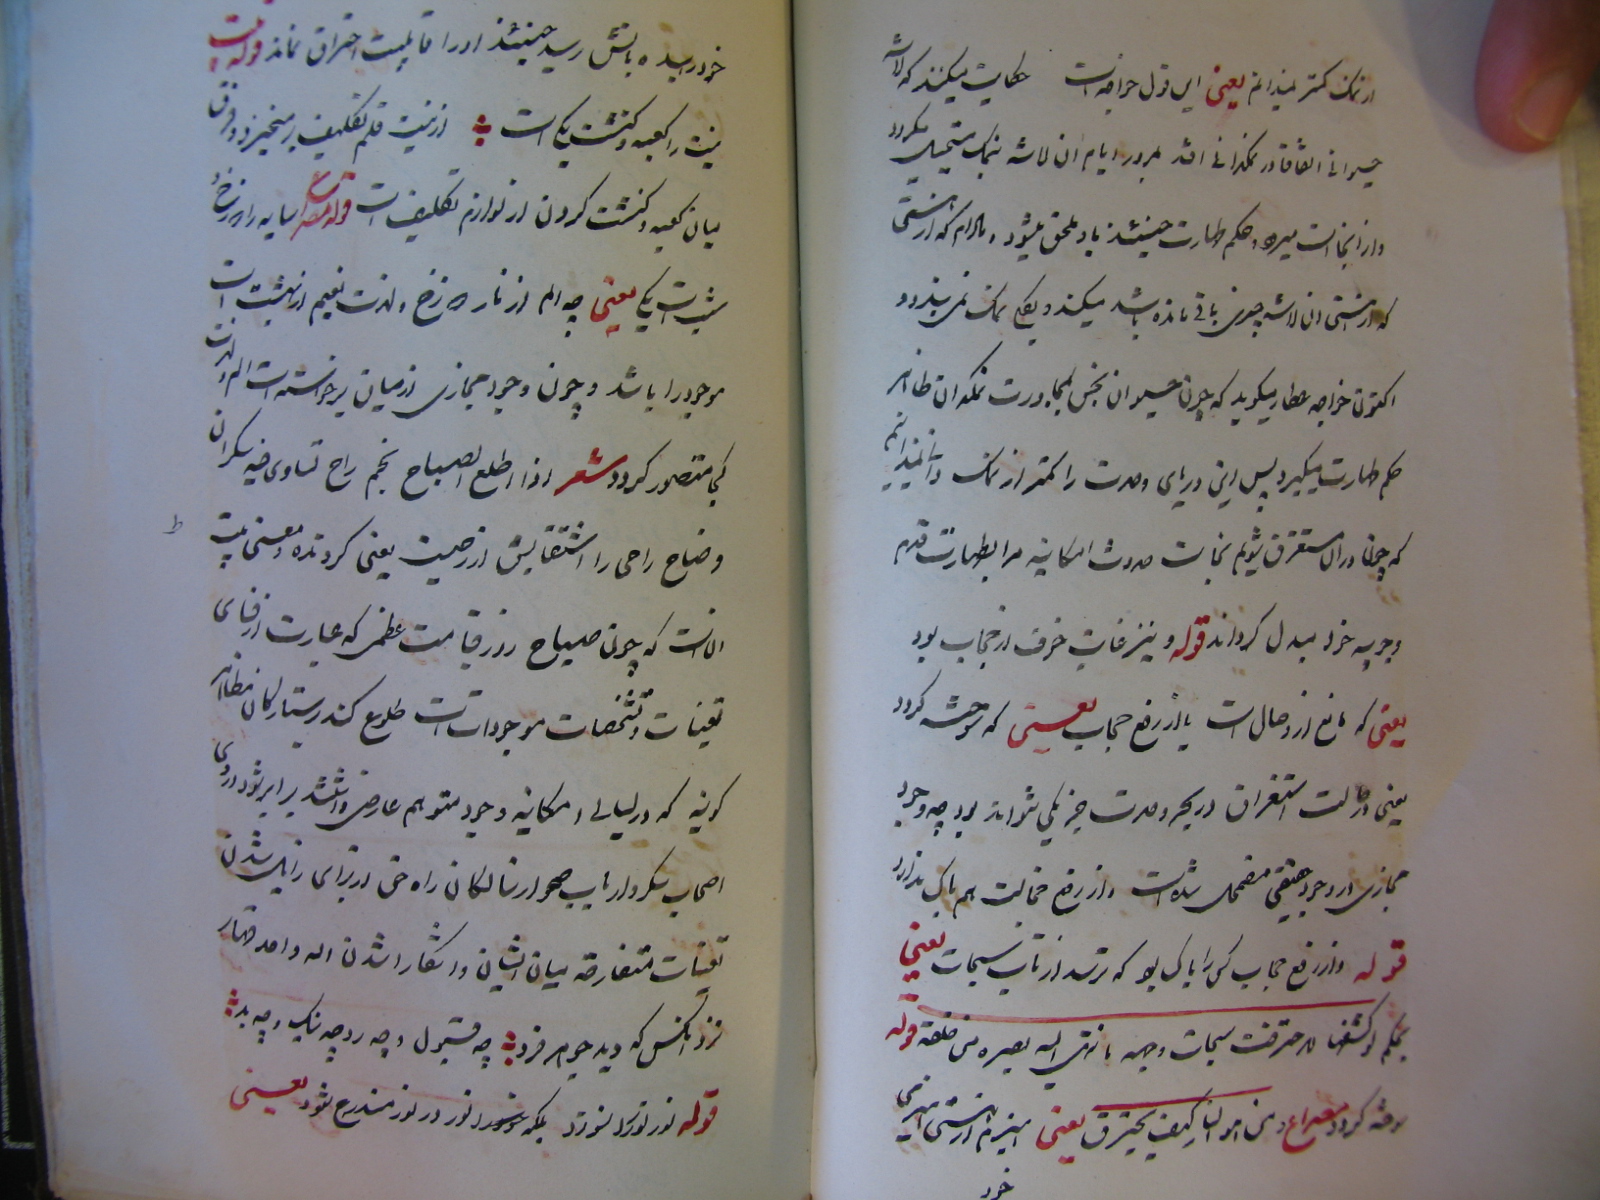 از نمک کمتر نمیدانم یعنی این قول خواجه است حکایت میکنند که لاشه
حیوانی اتفاقا در نمکدانی افتد بمرور ایام آن لاشه بنمک مستحیل میکردد
و از نجاست میرود حکم طهارت حینئذ باو ملحق میشود مادام که از هستی
که از هستی آن لاشه چیزی باقی مانده باشد میکند و بقیه نمک نمی پذیرد و
اکنون خواجه عطار میکوید که چون حیوان نجس بمجاورت نمکدان ظاهر
حکم طهارت میکیرد پس این دریای وحدت را کمتر از نمک نمیدانیم
که چون در آن مستغرق شویم نجاست حدوث امکانیه مرا بطهارت قدم
وجوبیه خود مبدل کرداند قوله و نیز غایت خوف از حجاب بود
یعنی که مانع از وصال است یا از رفع حجاب یعنی که سوخته کردد
یعنی در حالت استغراق در بحر وحدت هیچ یکی نتواند بود چه وجود
مجازی در وجود حقیقی مضمحل شده است و از رفع خجالت هم باک ندارد
قوله و از رفع حجاب کسی را باک بود که ترسد از تاب سبحات یعنی
بحکم لو کشفها لاحترقت سبحات وجهه ما انتهی الیه بصره من خلقه قوله
سوخته کردد مصراع و من هو النار کیف یحترق یعنی هیزم از هستی
خود
خود رسیده بآتش رسید حینئذ او را قابلیت احتراق نماند قوله
نیت را کعبه و کنشت یکی است از نیت قلم تکلیف بر میخیزد و فرق
میان کعبه و کنشت کردن از لوازم تکلیف است قوله مصراع سایه را دوزخ و
بهشت یکی است یعنی چه الم از نار دوزخ و لذت نعیم از بهشت است
موجود را باشد و چون وجود مجازی از میان برخواسته است الم و لذت
کجا متصور کردد شعر اذا طلع الصباح نجم راح تساوی فیه سکران
و صاح راحی را اشتقاقش از صیت یعنی کردنده و معنی بیت
آنست که چون صباح روز قیامت عظمی که عبارت از فنای
تعینات و تشخصات موجودات است طلوع کند و ستارکان مظاهر
کونیه که در لیالی امکانیه وجود متوهم عارضی داشتند برابر شود در وی
اصحاب سکر و ارباب صحو از سالکان راه حق از برای زایل شدن
تعینات متفارقه میان ایشان و آشکارا شدن اله واحد قهار
نزد آنکس که دید جوهر فرد چه قبول و چه رد چه نیک و چه بد
قوله نور نور را نسوزد بلکه نور در نور مندرج شود یعنی